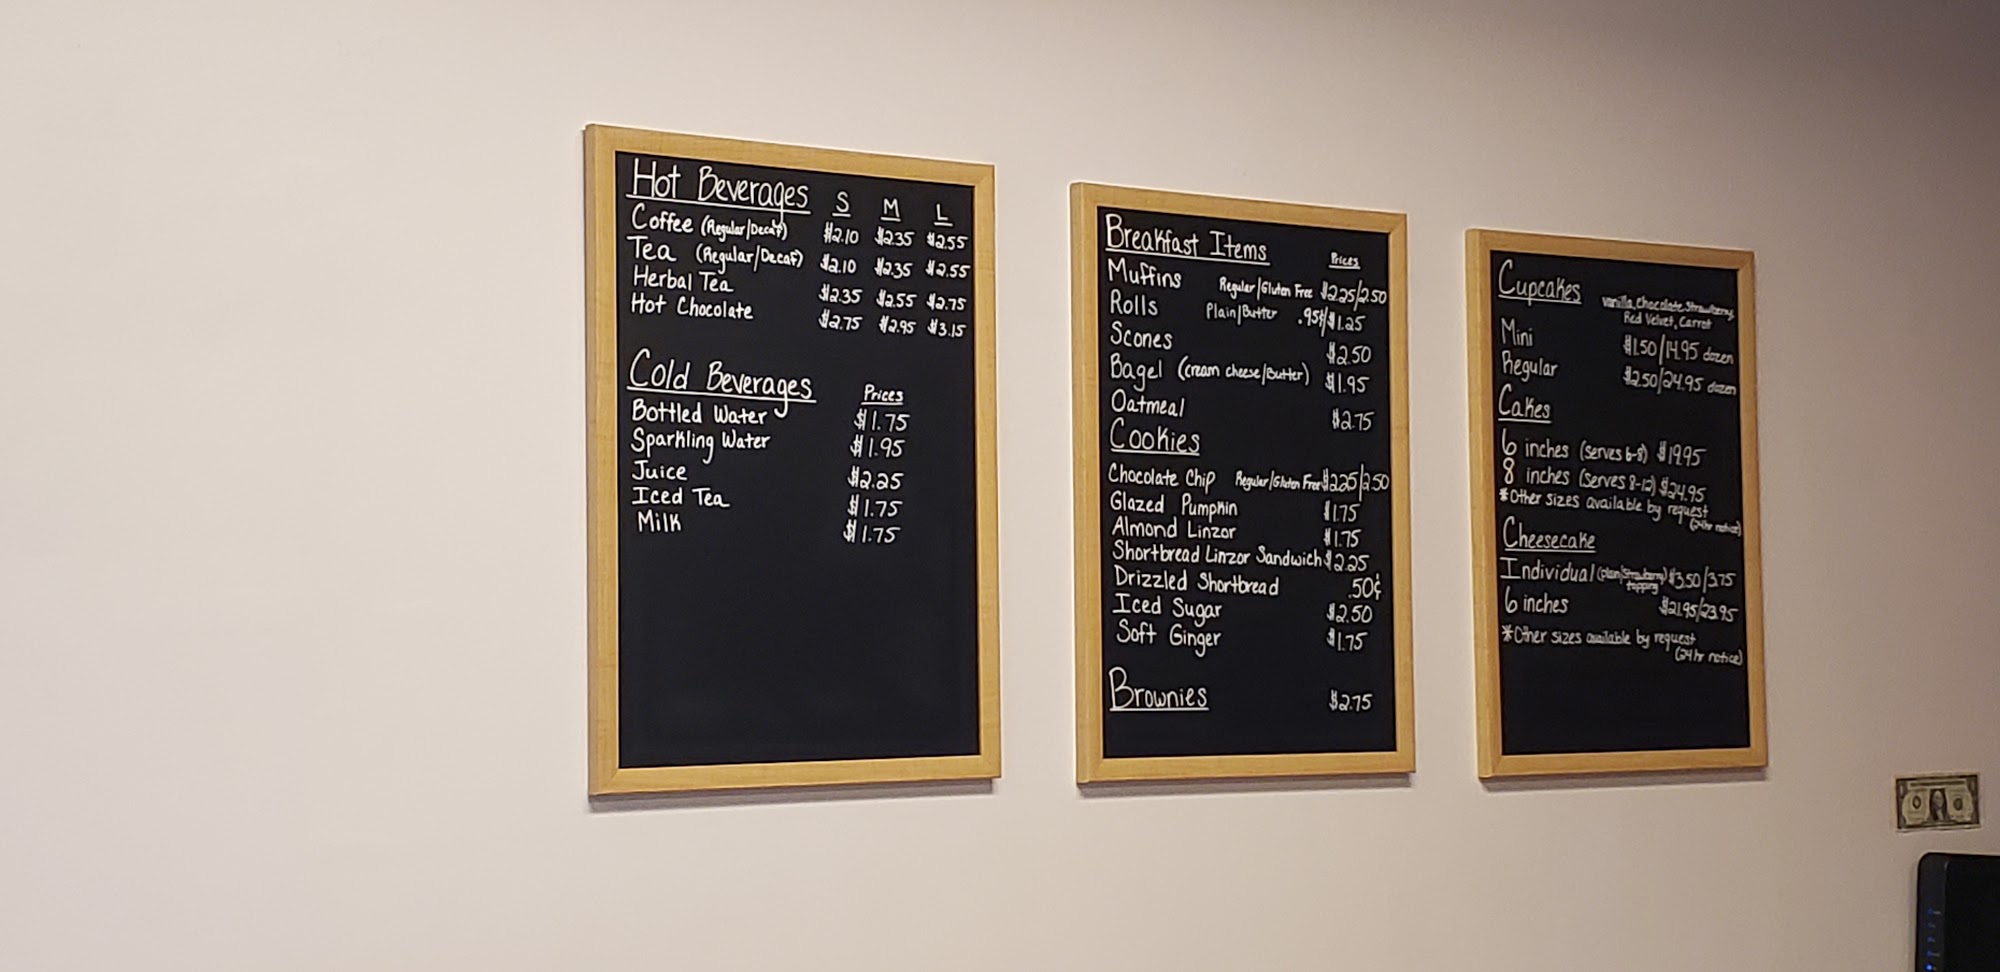 Hot Beverages S M L
Coffee (Regular/Decaf) $2.10 $2.35 $2.55
Tea (Regular/Decaf) $2.10 $2.35 $2.55
Herbal Tea $2.35 $2.55 $2.75
Hot Chocolate $2.75 $2.95 $3.15
Cold Beverages Prices
Bottled Water $1.75
Sparkling Water $1.95
Juice $2.25
Iced Tea $1.75
Milk $1.75
Breakfast Items Prices
Muffins Regular/Gluten Free $2.25/2.50
Rolls Plain/Butter .95¢/$1.25
Scones $2.50
Bagel (cream cheese/Butter) $1.95
Oatmeal $2.75
Cookies
Chocolate Chip Regular/Gluten Free $2.25/2.50
Glazed Pumpkin $1.75
Almond Linzor $1.75
Shortbread Linzor Sandwich $2.25
Drizzled Shortbread .50¢
Iced Sugar $2.50
Soft Ginger $1.75
Brownies $2.75
Cupcakes Vanilla, Chocolate, Strawberry,
Red Velvet, Carrot
Mini $1.50/14.95 dozen
Regular $2.50/24.95 dozen
Cakes
6 inches (serves 6-8) $19.95
8 inches (serves 8-12) $24.95
*Other sizes available by request
(24hr notice)
Cheesecake
Individual (plain/Strawberry topping) $3.50/3.75
6 inches $21.95/23.95
*Other sizes available by request
(24 hr notice)